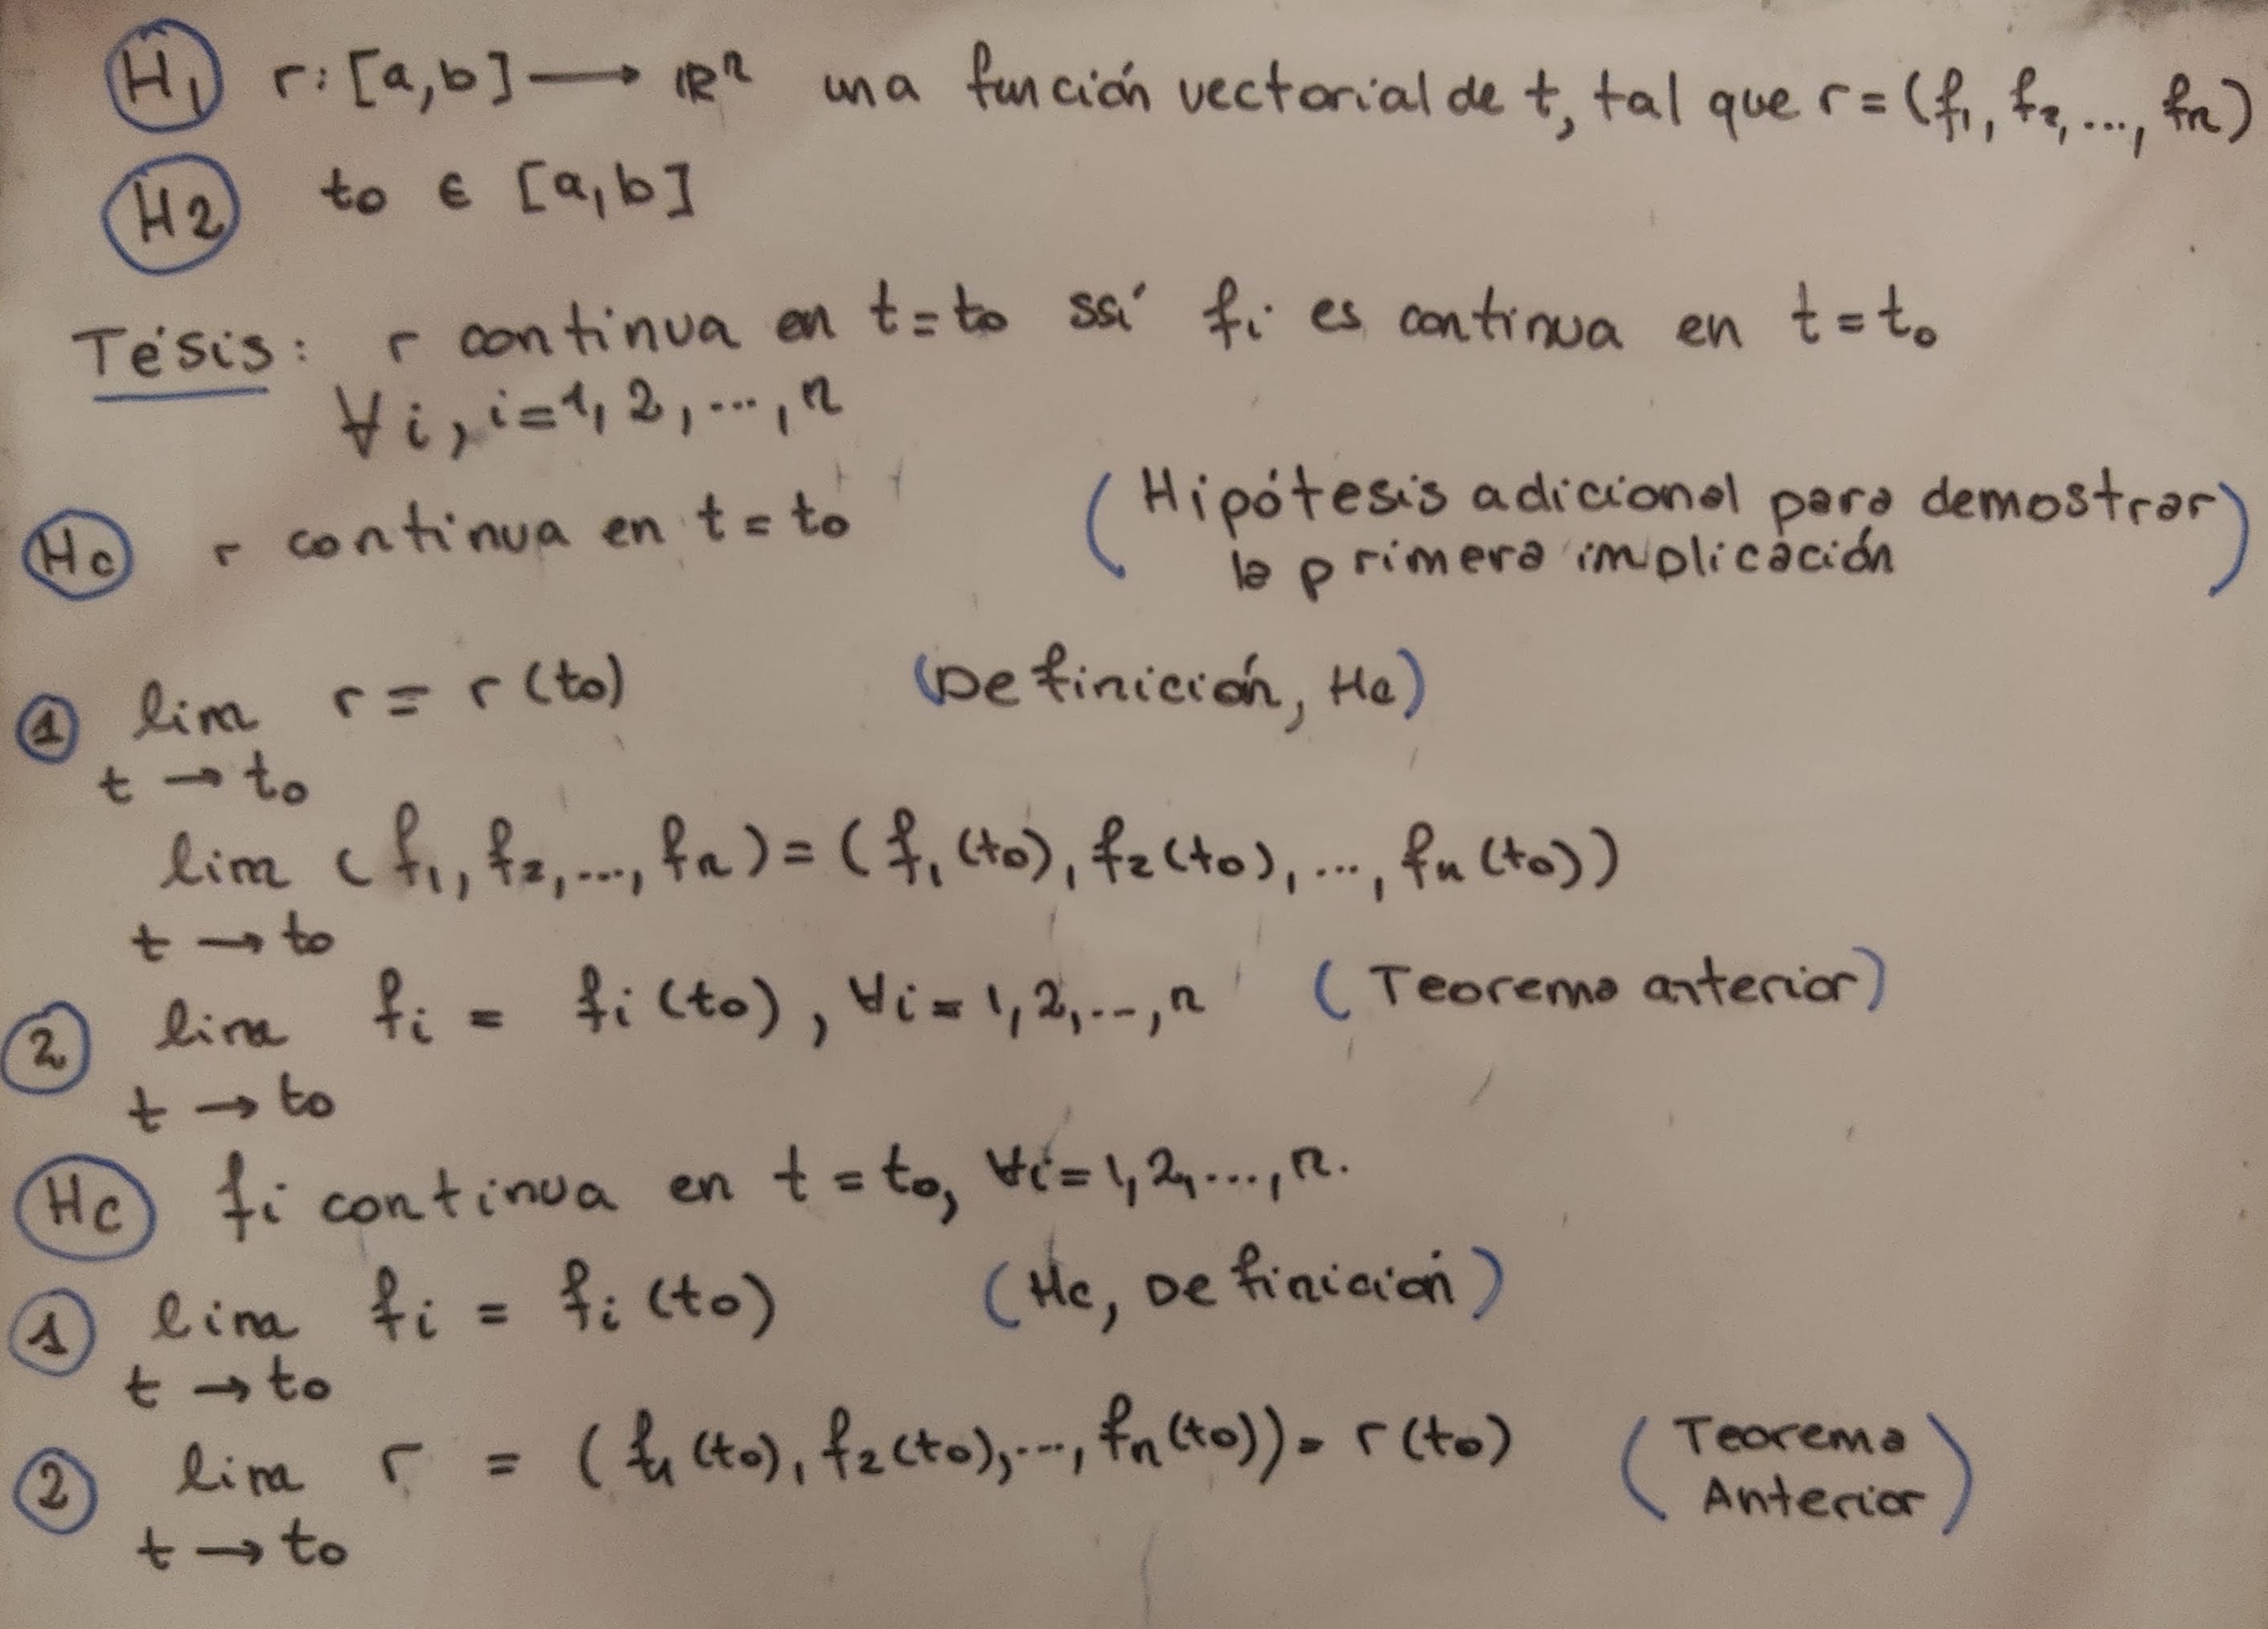 H1 r: [a,b] → ℝⁿ una función vectorial de t, tal que r = (f₁, f₂, ..., fₙ)
H2 t₀ ∈ [a,b]
Tésis: r continua en t = t₀ ssí fᵢ es continua en t = t₀
∀i, i=1, 2, ..., n
Hc r continua en t = t₀ (Hipótesis adicional para demostrar
la primera implicación)
1 lim r = r(t₀) (Definición, Hc)
t → t₀
lim (f₁, f₂, ..., fₙ) = (f₁(t₀), f₂(t₀), ..., fₙ(t₀))
t → t₀
2 lim fᵢ = fᵢ(t₀), ∀i = 1, 2, ..., n (Teorema anterior)
t → t₀
Hc fᵢ continua en t = t₀, ∀i = 1, 2, ..., n.
1 lim fᵢ = fᵢ(t₀) (Hc, Definición)
t → t₀
2 lim r = (f₁(t₀), f₂(t₀), ..., fₙ(t₀)) = r(t₀) (Teorema
Anterior)
t → t₀